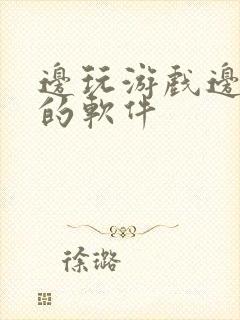 邊玩游戲邊
的軟件
徐璐